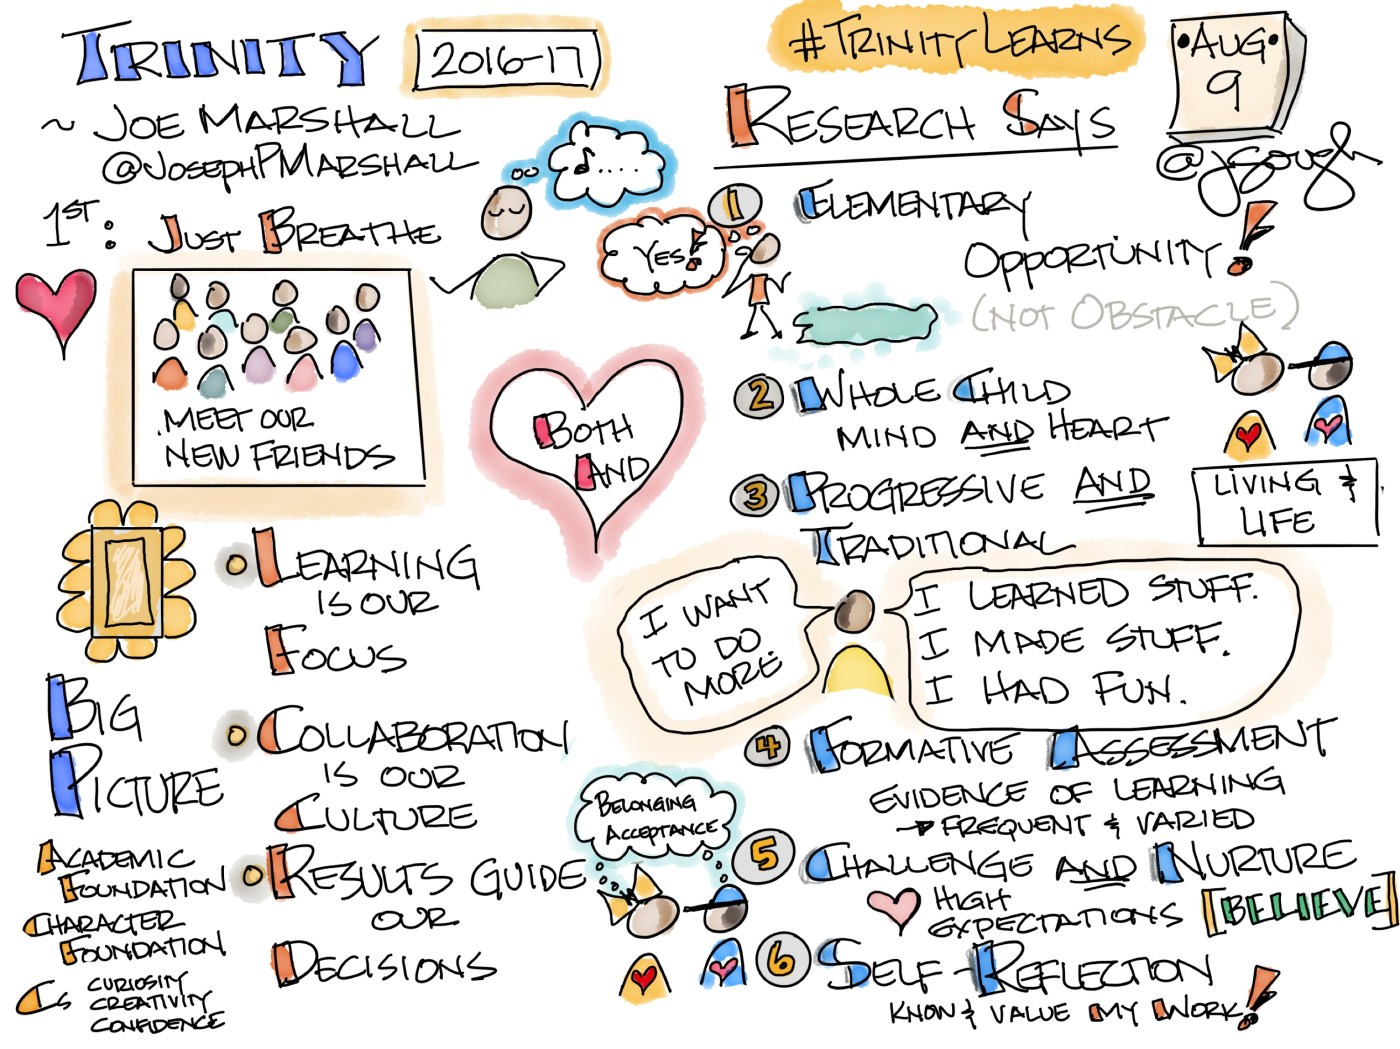 TRINITY
2016-17
~ JOE MARSHALL
@JOSEPHPMARSHALL
1ST: JUST BREATHE
MEET OUR
NEW FRIENDS
BOTH
AND
LEARNING
IS OUR
FOCUS
BIG
PICTURE
COLLABORATION
IS OUR
CULTURE
ACADEMIC
FOUNDATION
CHARACTER
FOUNDATION
Cs CURIOSITY
CREATIVITY
CONFIDENCE
RESULTS GUIDE
OUR
DECISIONS
#TRINITYLEARNS
AUG
9
@jgough
RESEARCH SAYS
YES!
1 ELEMENTARY
OPPORTUNITY!
(NOT OBSTACLE)
2 WHOLE CHILD
MIND AND HEART
3 PROGRESSIVE AND
TRADITIONAL
LIVING &
LIFE
I WANT
TO DO
MORE.
I LEARNED STUFF.
I MADE STUFF.
I HAD FUN.
4 FORMATIVE ASSESSMENT
EVIDENCE OF LEARNING
→ FREQUENT & VARIED
BELONGING
ACCEPTANCE
5 CHALLENGE AND NURTURE
HIGH
EXPECTATIONS [BELIEVE]
6 SELF-REFLECTION
KNOW & VALUE MY WORK!